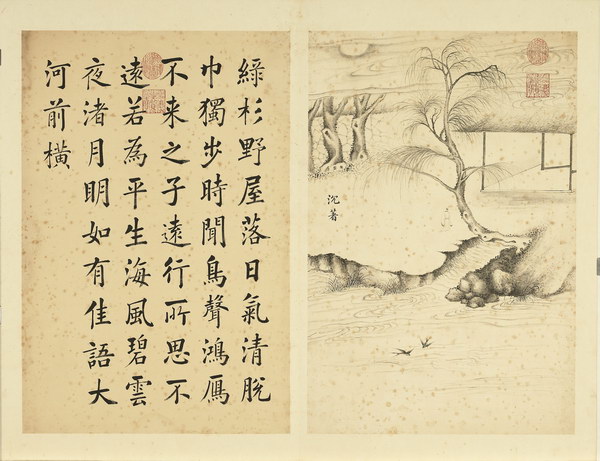 沉著
綠杉野屋落日氣清脫
巾獨步時聞鳥聲鴻鴈
不来之子遠行所思不
遠若為平生海風碧雲
夜渚月明如有佳語大
河前橫